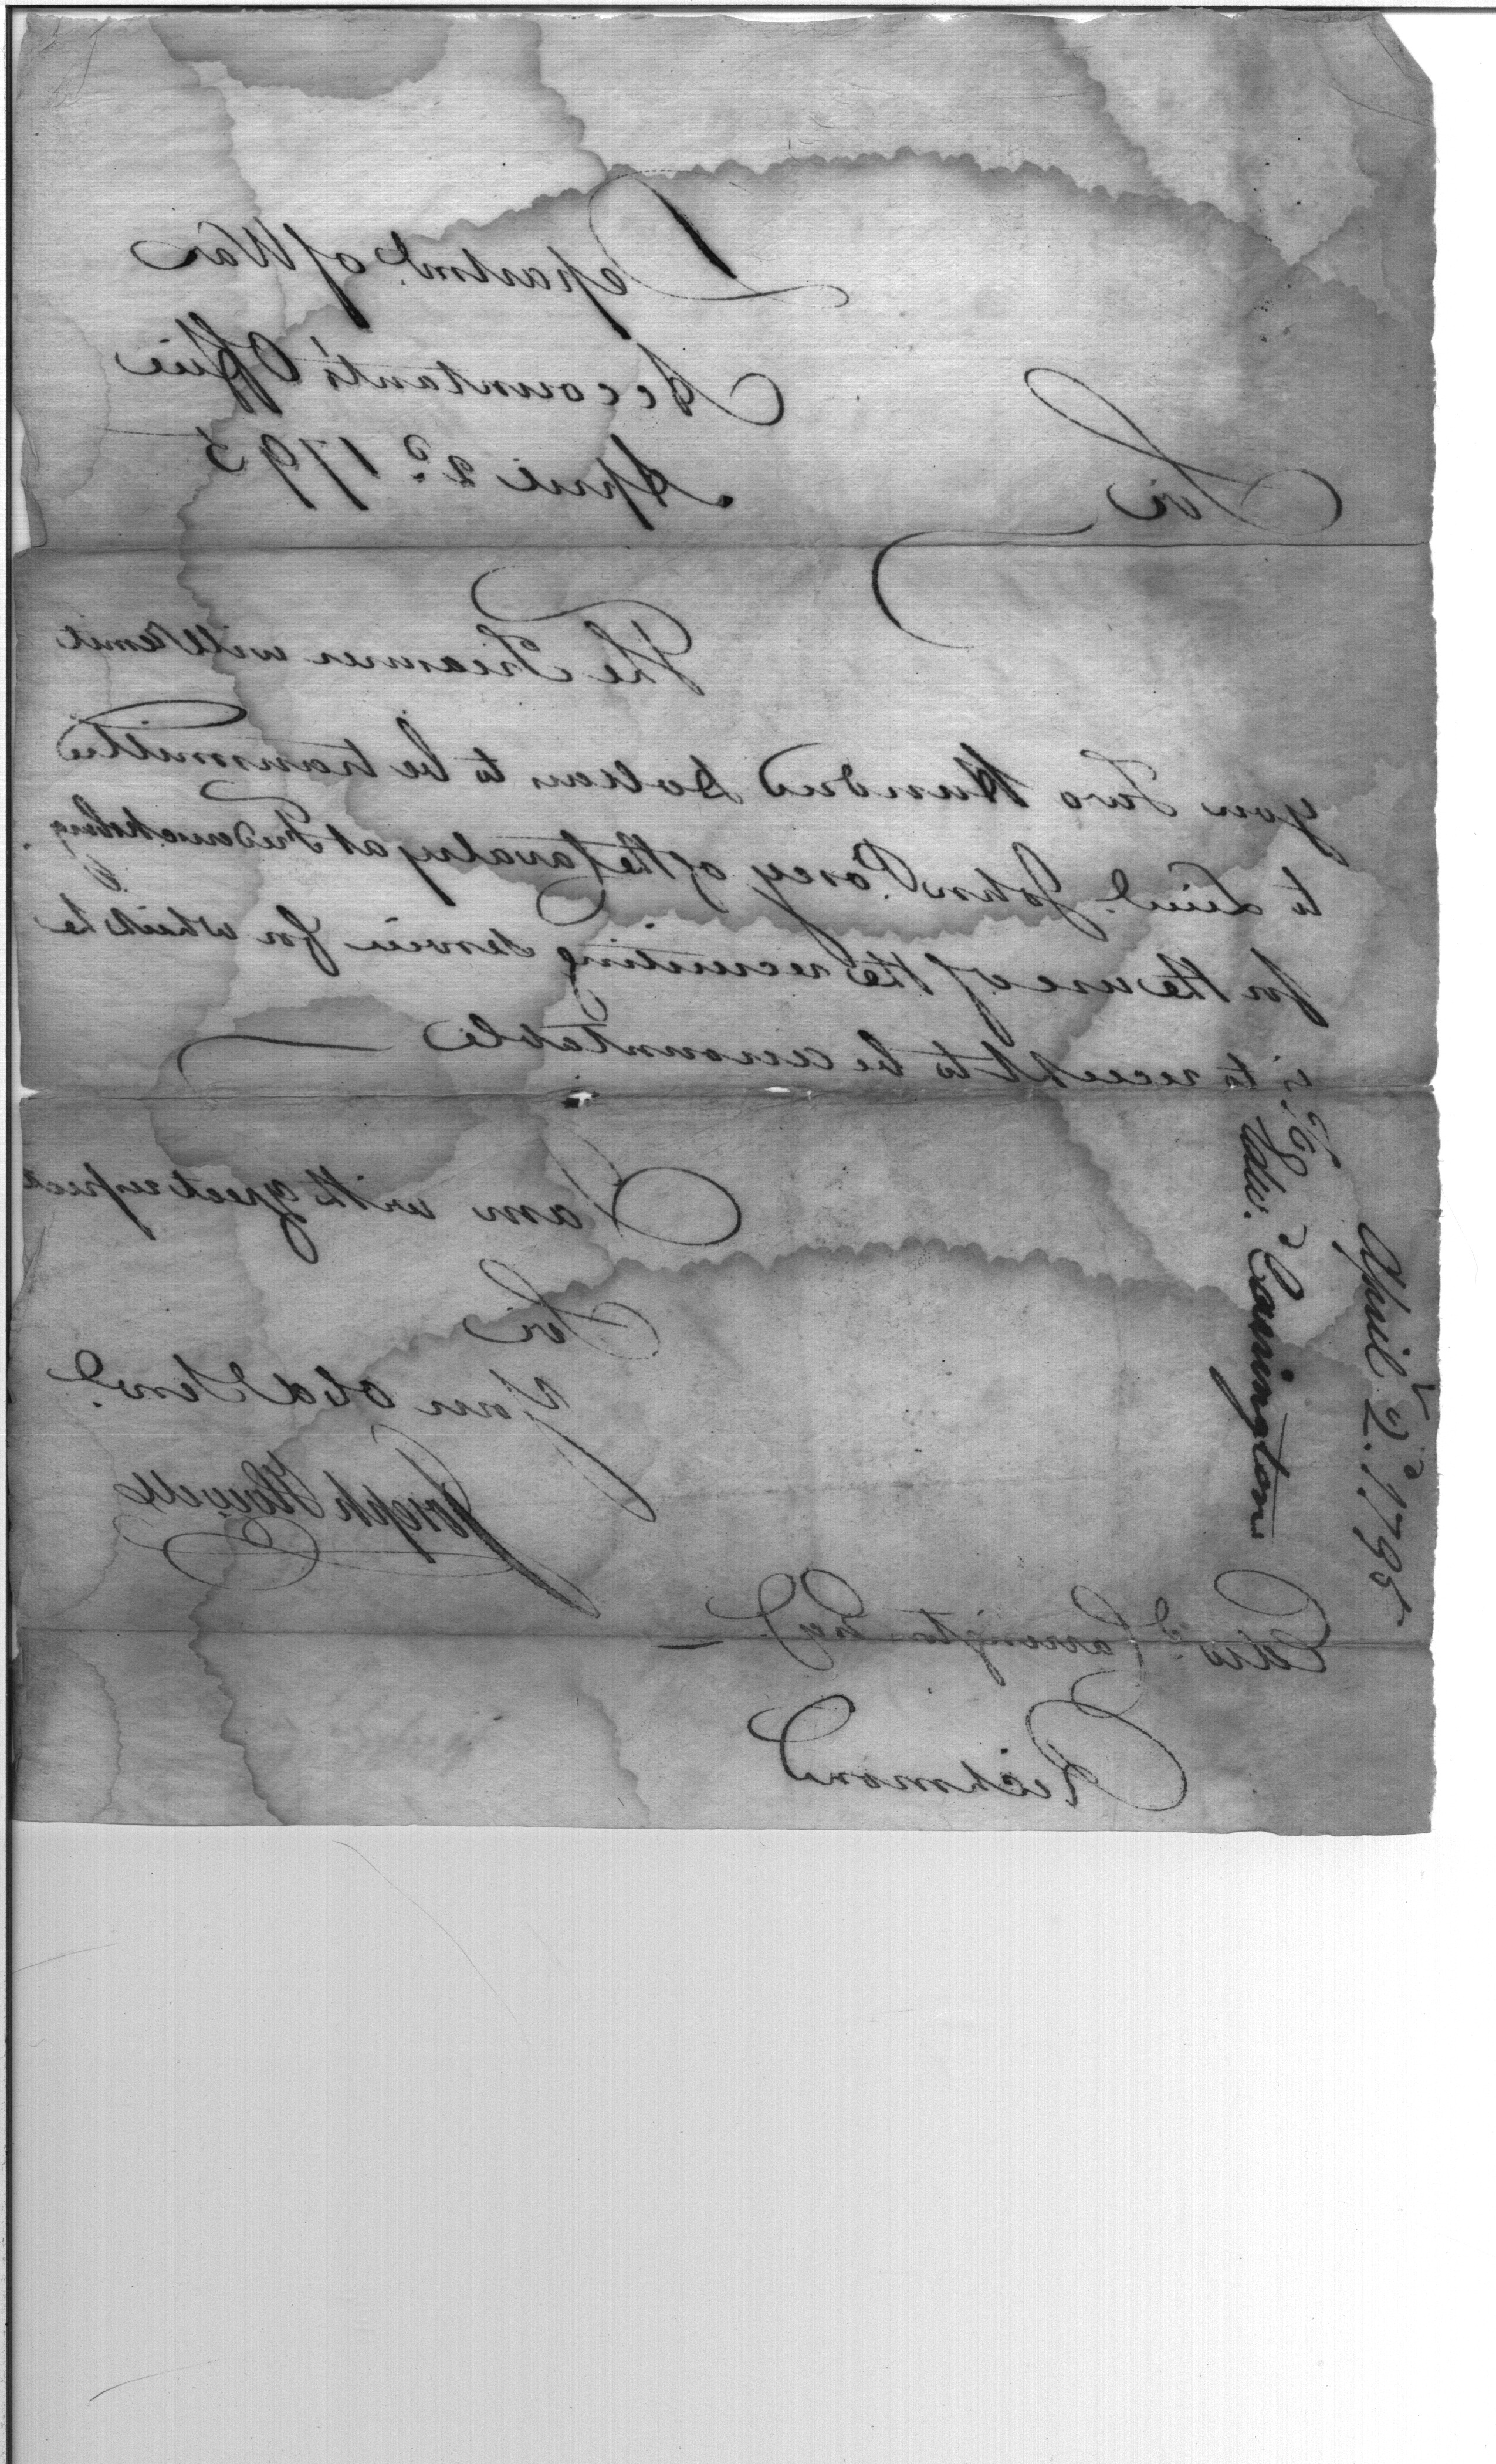 Departmt. of War
Accountant's Office
April 2d. 1795
Sir
The Treasurer will remit
you Two Hundred Dollars to be transmitted
to Lieut. John Posey of the Cavalry at Fredericksburg
for the use of the recruiting service for which he
is to receipt & to be accountable
I am with great respect
Sir
Your obd Servt.
Joseph Howell
Edwd. Carrington Esq
Richmond
Edw. Carrington
April 2d. 1795